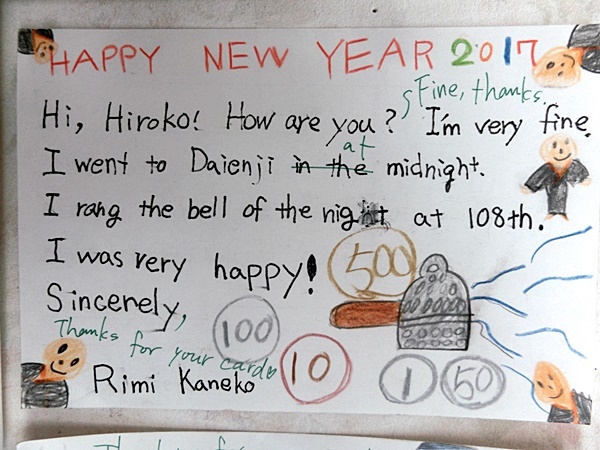 HAPPY NEW YEAR 2017
Fine, thanks.
Hi, Hiroko! How are you? I'm very fine.
at
I went to Daienji in the midnight.
I rang the bell of the night at 108th.
I was very happy!
500
Sincerely,
Thanks for your card
100
10
1
50
Rimi Kaneko